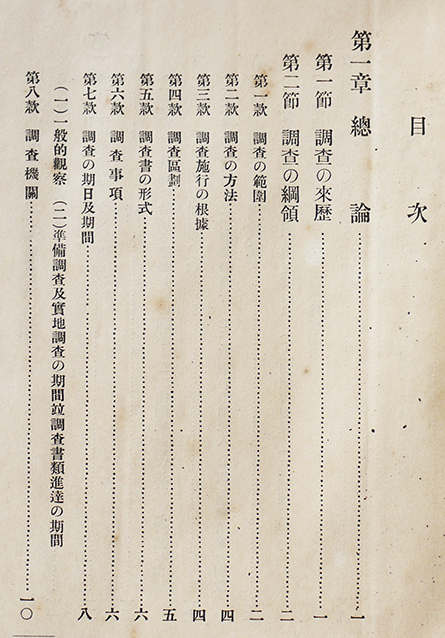 目次
第一章 總論……一
第一節 調査の來歷……一
第二節 調査の綱領……二
第一款 調査の範圍……二
第二款 調査の方法……四
第三款 調査施行の根據……四
第四款 調査區劃……五
第五款 調査書の形式……六
第六款 調査事項……六
第七款 調査の期日及期間……八
(一)一般的觀察 (二)準備調査及實地調査の期間竝調査書類進達の期間
第八款 調査機關……一〇